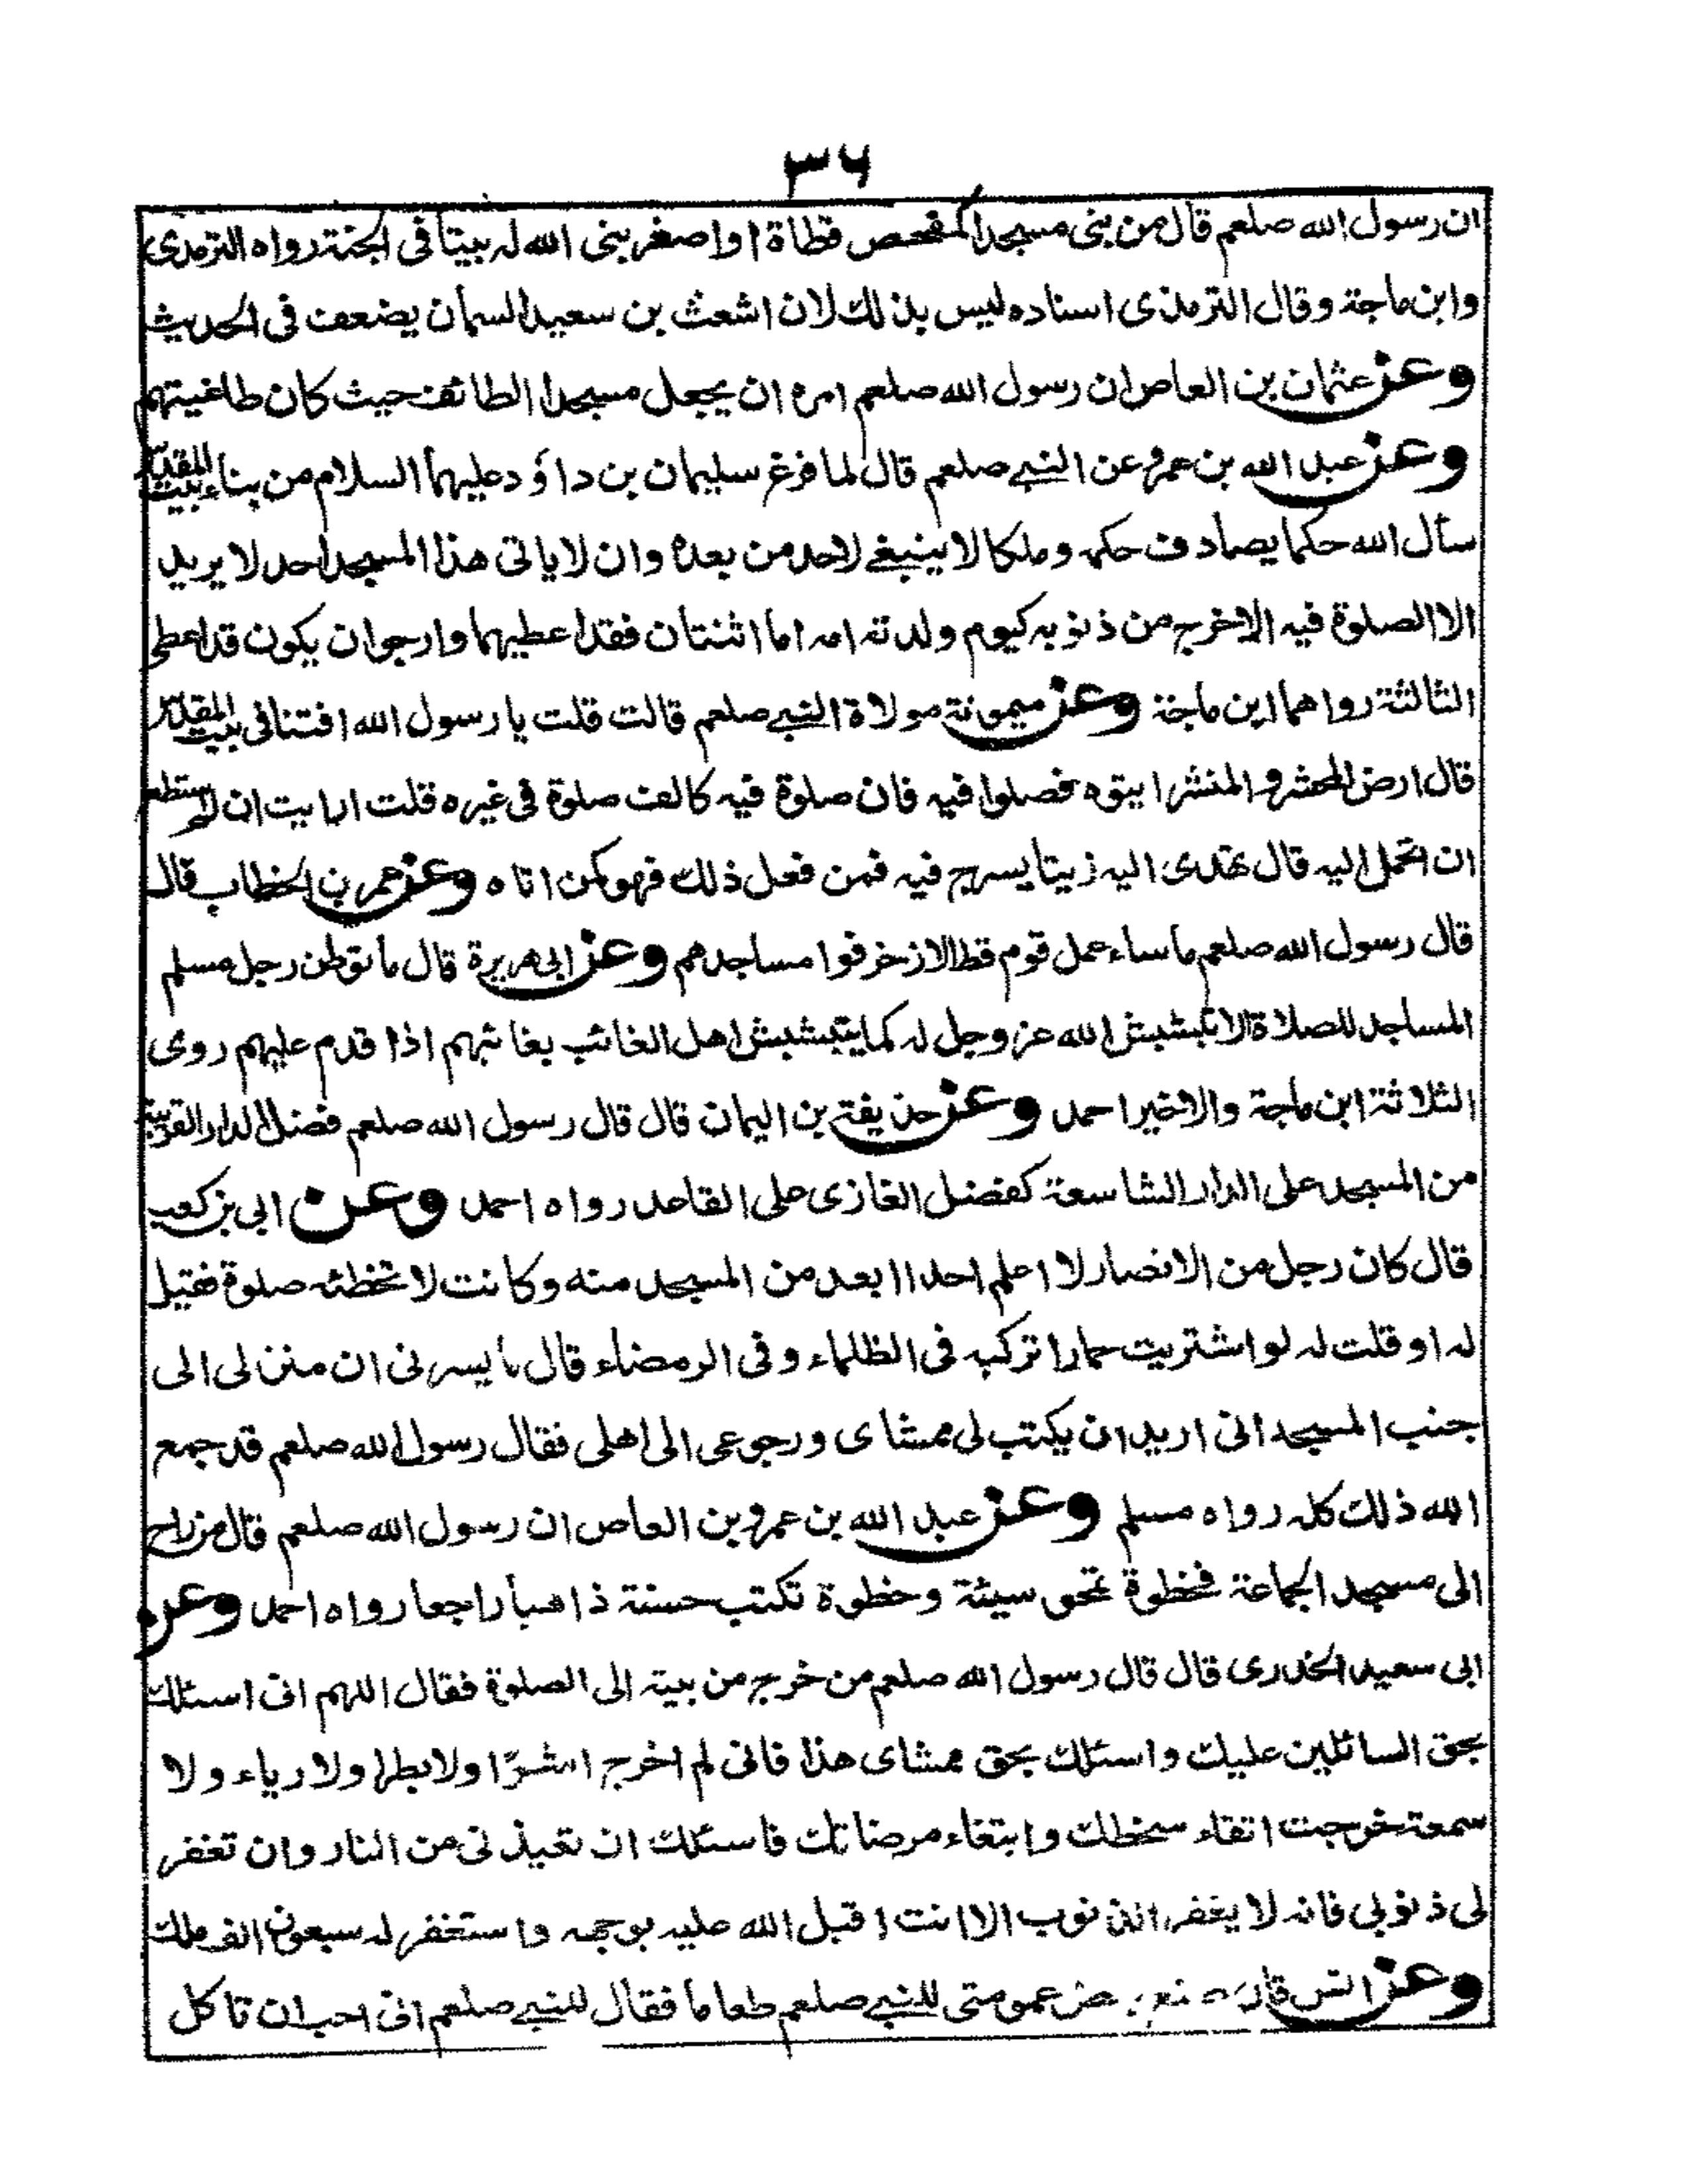 ٣٦
ان رسول الله صلعم قال من بنى مسجدا كمفحص قطاة او اصغر بنى الله له بيتا فى الجنة رواه الترمذى
وابن ماجة وقال الترمذى اسناده ليس بذلك لان اشعث بن سعيد السمان يضعف فى الحديث
وعن عثمان بن العاص ان رسول الله صلعم امره ان يجعل مسجدا الطائف حيث كان طاغيتهم
وعن عبد الله بن عمرو عن النبى صلعم قال لما فرغ سليمان بن داؤد عليهما السلام من بناء بيت المقدس
سأل الله حكما يصادف حكمه وملكا لا ينبغى لاحد من بعده وان لا ياتى هذا المسجد احد لا يريد
الا الصلوة فيه الا خرج من ذنوبه كيوم ولدته امه اما اثنتان فقد اعطيهما وارجو ان يكون قد اعطى
الثالثة رواهما ابن ماجة وعن ميمونة مولاة النبى صلعم قالت قلت يا رسول الله افتنا فى بيت المقدس
قال ارض المحشر والمنشر ايتوه فصلوا فيه فان صلوة فيه كالف صلوة فى غيره قلت ارايت ان لم يستطع
ان اتحمل اليه قال تهدى اليه زيتا يسرج فيه فمن فعل ذلك فهو كمن اتاه وعن عمر بن الخطاب قال
قال رسول الله صلعم ما ساء عمل قوم قط الا زخرفوا مساجدهم وعن ابى هريرة قال ما توطن رجل مسلم
المساجد للصلاة الا تبشبش الله عز وجل له كما يتبشبش اهل الغائب بغائبهم اذا قدم عليهم روى
الثلاثة ابن ماجة والاخير احمد وعن حذيفة بن اليمان قال قال رسول الله صلعم فضل الدار القريبة
من المسجد على الدار الشاسعة كفضل الغازى على القاعد رواه احمد وعن ابى بن كعب
قال كان رجل من الانصار لا اعلم احدا ابعد من المسجد منه وكانت لا تخطئه صلوة فقيل
له او قلت له لو اشتريت حمارا تركبه فى الظلماء وفى الرمضاء قال ما يسرنى ان منزلى الى
جنب المسجد انى اريد ان يكتب لى ممشاى ورجوعى الى اهلى فقال رسول الله صلعم قد جمع
الله ذلك كله رواه مسلم وعن عبد الله بن عمرو بن العاص ان رسول الله صلعم قال من راح
الى مسجد الجماعة فخطوة تمحو سيئة وخطوة تكتب حسنة ذاهبا راجعا رواه احمد وعن
ابى سعيد الخدرى قال قال رسول الله صلعم من خرج من بيته الى الصلوة فقال اللهم انى اسئلك
بحق السائلين عليك واسئلك بحق ممشاى هذا فانى لم اخرج اشرّا ولا بطرا ولا رياء ولا
سمعة خرجت اتقاء سخطك وابتغاء مرضاتك فاسئلك ان تعيذنى من النار وان تغفر
لى ذنوبى فانه لا يغفر الذنوب الا انت اقبل الله عليه بوجهه واستغفر له سبعون الف ملك
وعن انس قال صنع بعض عمومتى للنبى صلعم طعاما فقال للنبى صلعم انى احب ان تاكل